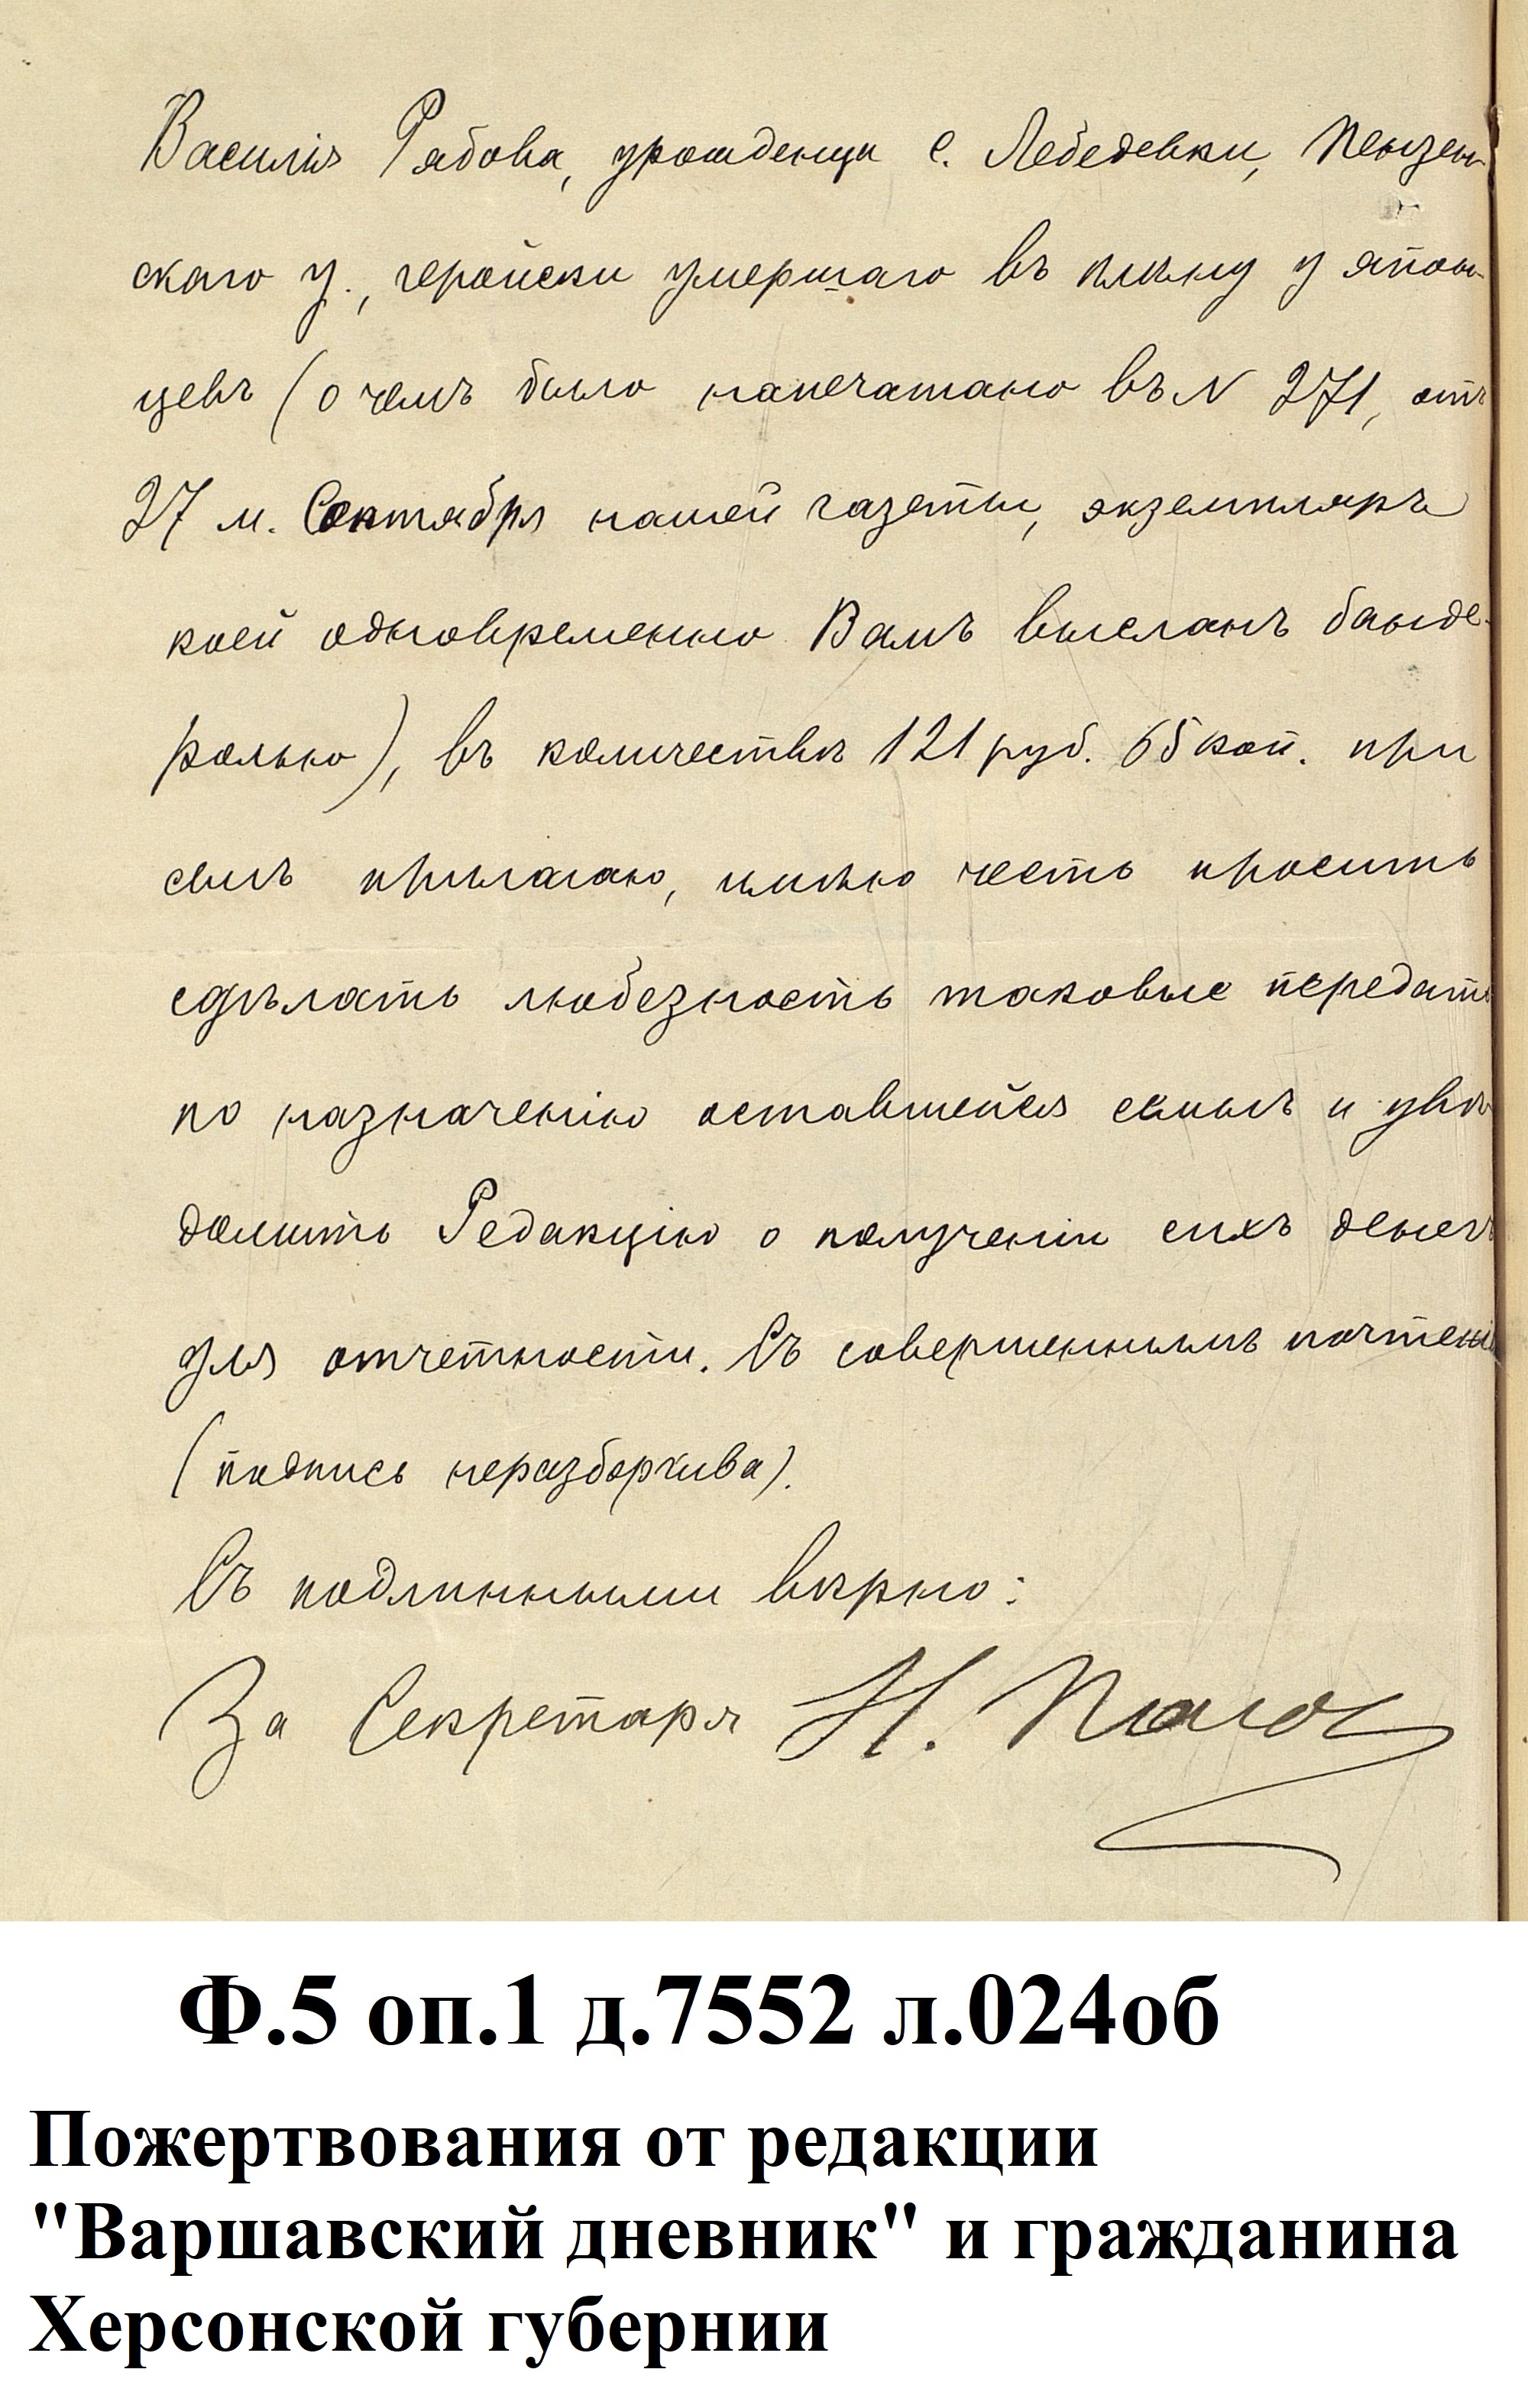 Василія Рябова, урожденца с. Лебедевки, Пензен-
скаго у., геройски умершаго въ плѣну у япон-
цевъ (о чемъ было напечатано въ N 271, отъ
27 м. Сентября нашей газеты, экземпляръ
коей одновременно Вамъ высланъ банде-
ролью), въ количествѣ 121 руб. 65 коп. при
семъ прилагаю, имѣю честь просить
сдѣлать любезность таковые передать
по назначенію оставшейся семьѣ и увѣ-
домить Редакцію о полученіи сихъ денегъ
для отчетности. Съ совершеннымъ почтені
(подпись неразборчива).
Съ подлинными вѣрно:
За Секретаря Н.
Ф.5 оп.1 д.7552 л.024об
Пожертвования от редакции
"Варшавский дневник" и гражданина
Херсонской губернии